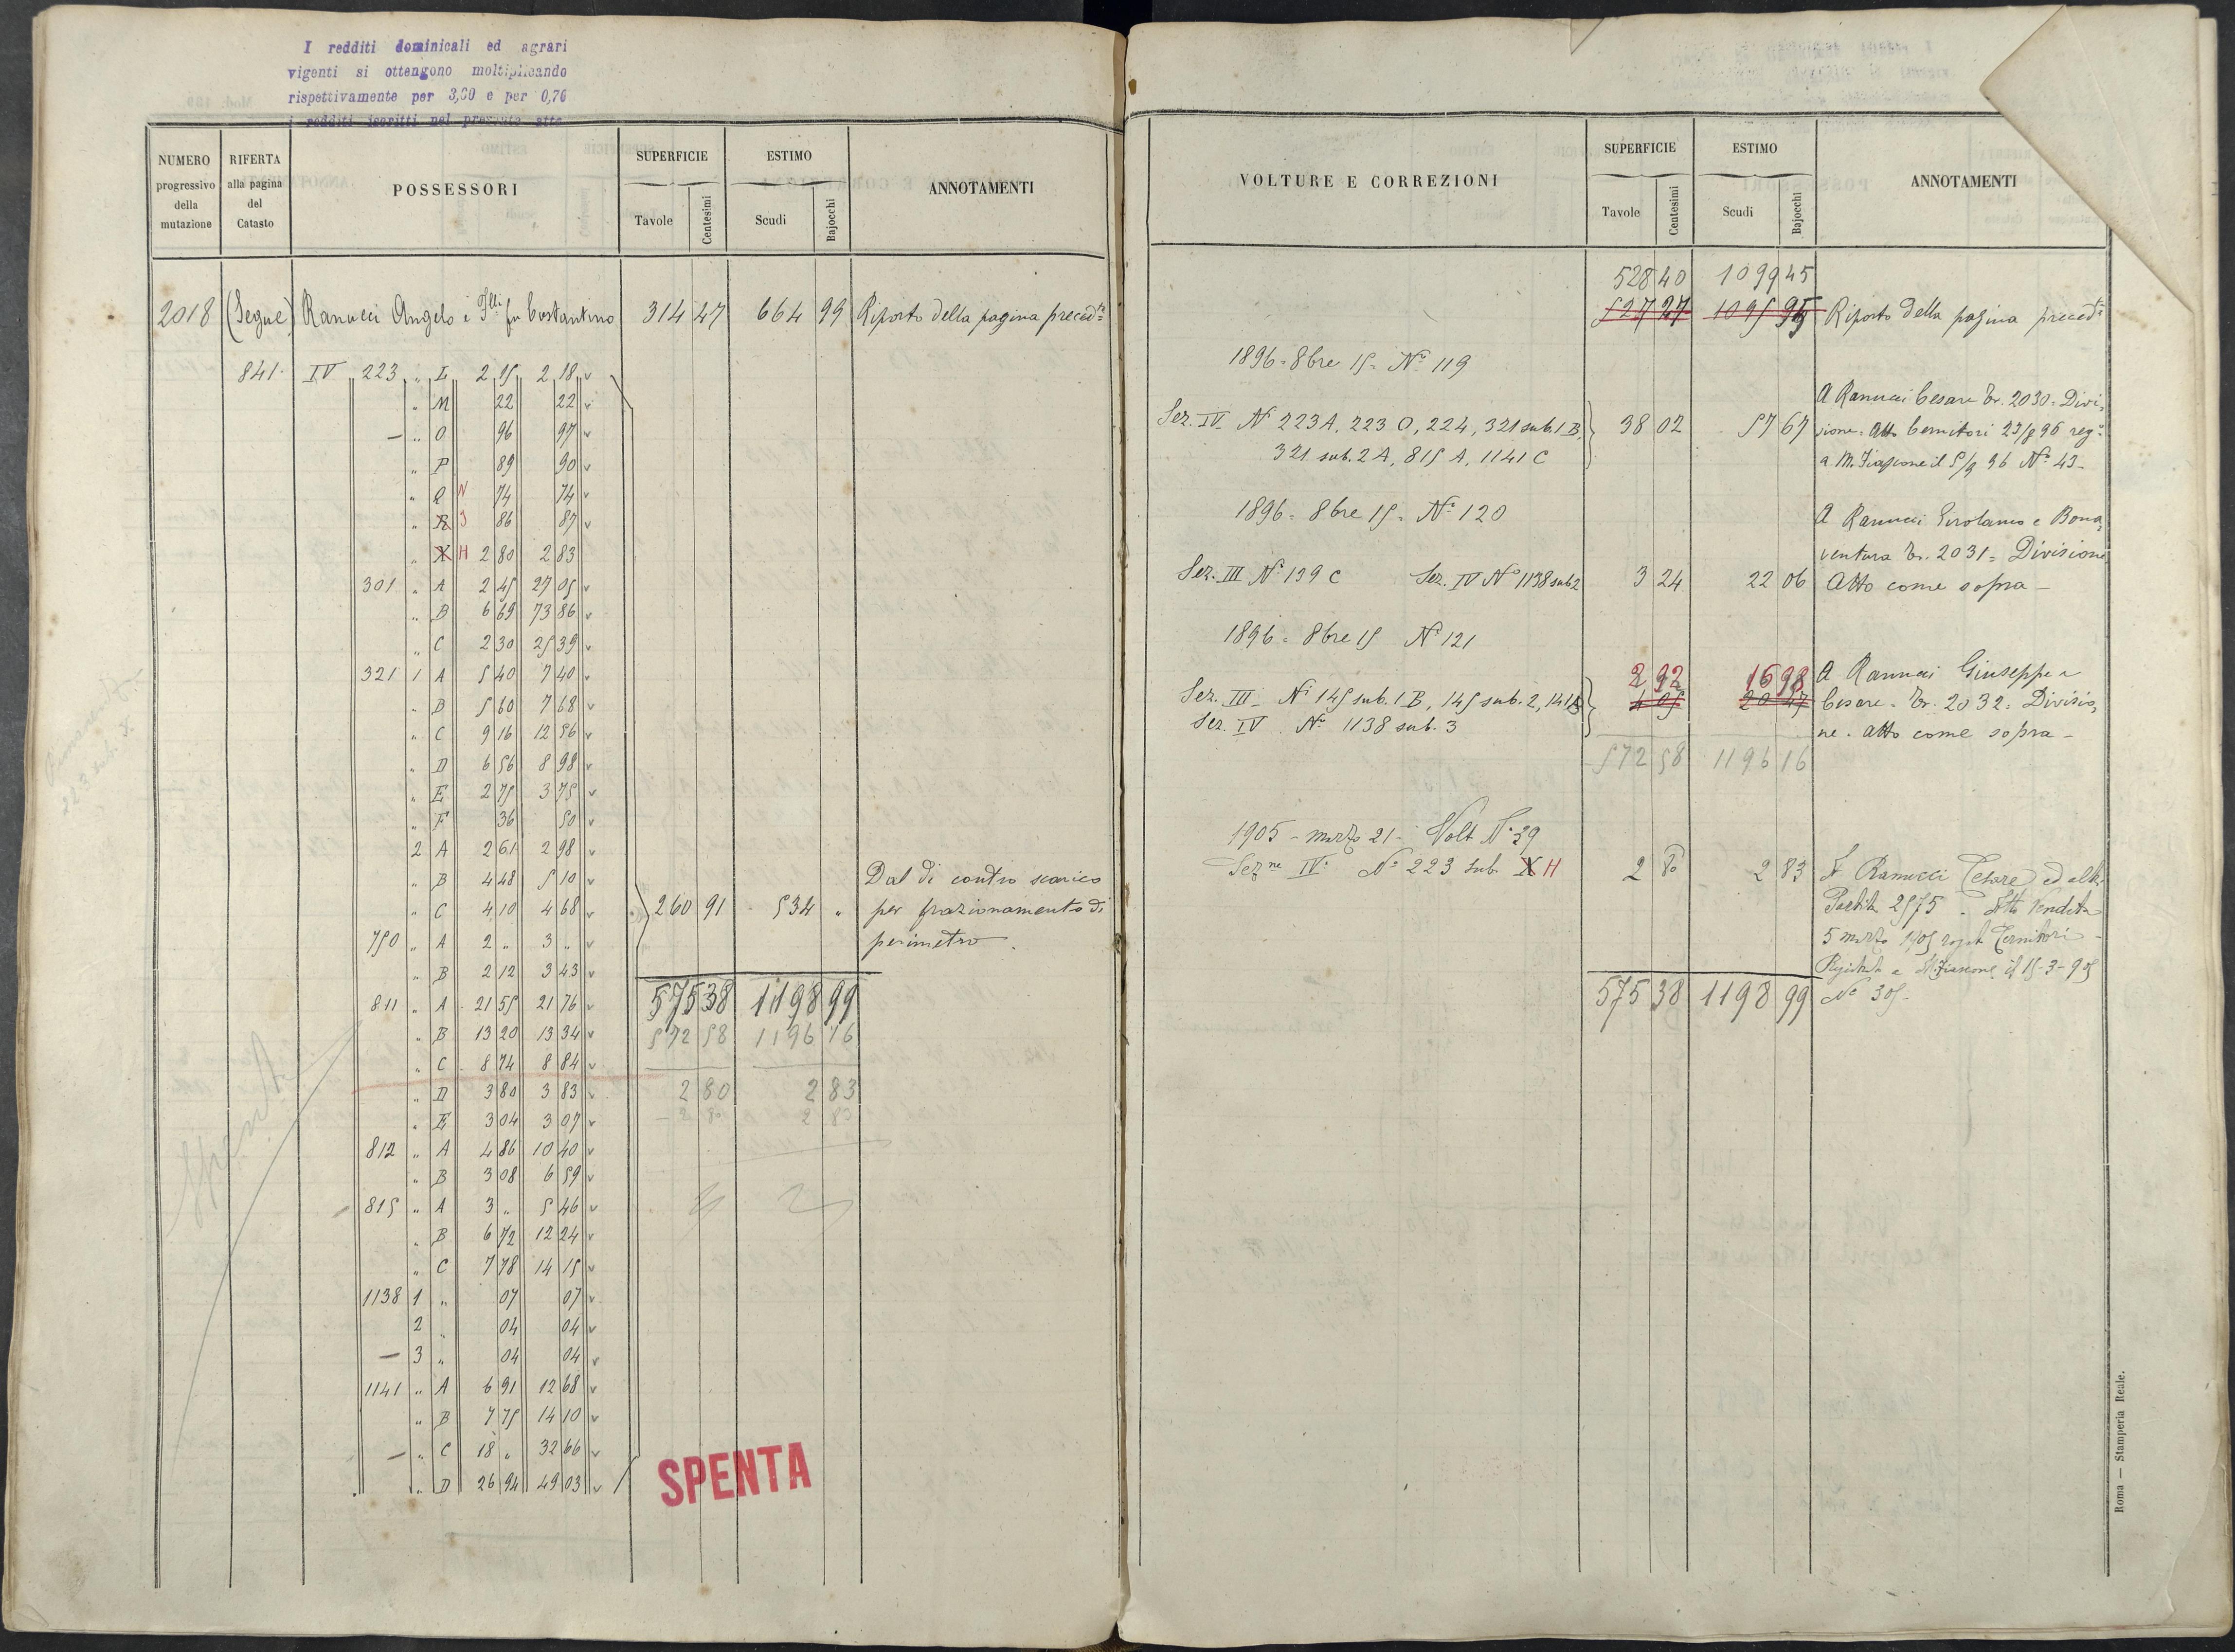 I redditi dominicali ed agrari
vigenti si ottengono moltiplicando
rispettivamente per 3,60 e per 0,76
i redditi iscritti nel presente atto
NUMERO progressivo della mutazione
RIFERTA alla pagina del Catasto
POSSESSORI
SUPERFICIE
Tavole Centesimi
ESTIMO
Scudi Bajocchi
ANNOTAMENTI
2018 (Segue) Ranucci Angelo e Flli fu Costantino 314 47 664 99 Riporto della pagina precedte
841 IV 223 " L 2 15 2 18 v
" M 22 22 v
— " O 96 97 v
" P 89 90 v
" Q N 74 74 v
" R J 86 87 v
" X H 2 80 2 83
301 " A 2 45 27 05 v
" B 6 69 73 86 v
" C 2 30 25 39 v
321 1 A 5 40 7 40 v
" B 5 60 7 68 v
" C 9 16 12 56 v
" D 6 56 8 98 v
" E 2 75 3 75 v
" F 36 50 v
2 A 2 61 2 98 v
" B 4 48 5 10 v
" C 4 10 4 68 v
750 " A 2 " 3 " v
" B 2 12 3 43 v
811 " A 21 55 21 76 v
" B 13 20 13 34 v
" C 8 74 8 84 v
" D 3 80 3 83 v
" E 3 04 3 07 v
812 " A 4 86 10 40 v
" B 3 08 6 59 v
— 815 " A 3 " 5 46 v
" B 6 72 12 24 v
" C 7 78 14 15 v
1138 1 " 07 07 v
2 " 04 04 v
— 3 " 04 04 v
1141 " A 6 91 12 68 v
" B 7 75 14 10 v
— " C 18 " 32 66 v
" D 26 94 49 03 v
260 91 534 "
Dal di contro scarico
per frazionamento di
perimetro.
575 38 1198 99
572 58 1196 16
2 80 2 83
2 80 2 83
Spenta
223 sub. X
SPENTA
VOLTURE E CORREZIONI
SUPERFICIE
Tavole Centesimi
ESTIMO
Scudi Bajocchi
ANNOTAMENTI
528 40 1099 45
527 27 1095 95 Riporto della pagina precedte
1896 = 8bre 15 = No 119
Sez. IV N 223 A, 223 O, 224, 321 sub. 1 B,
321 sub. 2 A, 815 A, 1141 C
38 02 57 67
A Ranucci Cesare Tr. 2030 = Divi=
sione = Atto Cernitori 23/8 96 rego
a M. Fiascone il 5/9 96 No 43 -
1896 = 8bre 15 = No 120
Sez. III No 139 C Sez. IV No 1138 sub 2 3 24 22 06
A Ranucci Girolamo e Bona=
ventura Tr. 2031 = Divisione
Atto come sopra —
1896 = 8bre 15 No 121
Sez. III Ni 145 sub. 1 B, 145 sub. 2, 141 B
Sez. IV No 1138 sub. 3
2 92 16 98
4 05 20 47
A Ranucci Giuseppe e
Cesare = Tr. 2032 = Divisio=
ne. atto come sopra —
572 58 1196 16
1905 - marzo 21 - Volt No 39
Sezne IVa No 223 sub. X H 2 80 2 83
A Ranucci Cesare ed altri
Partita 2575. Atto Vendita
5 marzo 1905 rogato Cernitori -
Registrato a M. Fiascone il 15-3-905
No 305-
575 38 1198 99
Roma — Stamperia Reale.